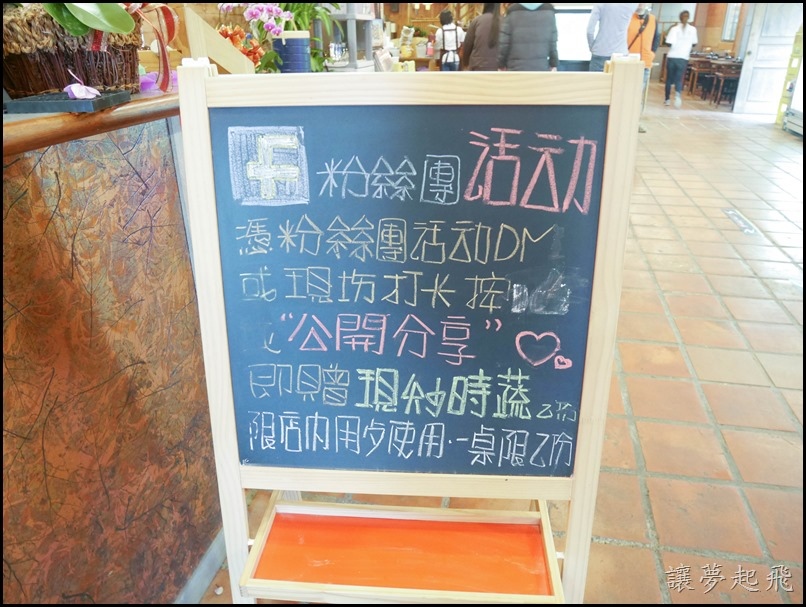 f 粉絲團活动
憑粉絲團活动DM
或現场打卡按
"公開分享"
即贈現炒時蔬乙份
限店内用夕使用.一桌限乙份
讓夢起飛